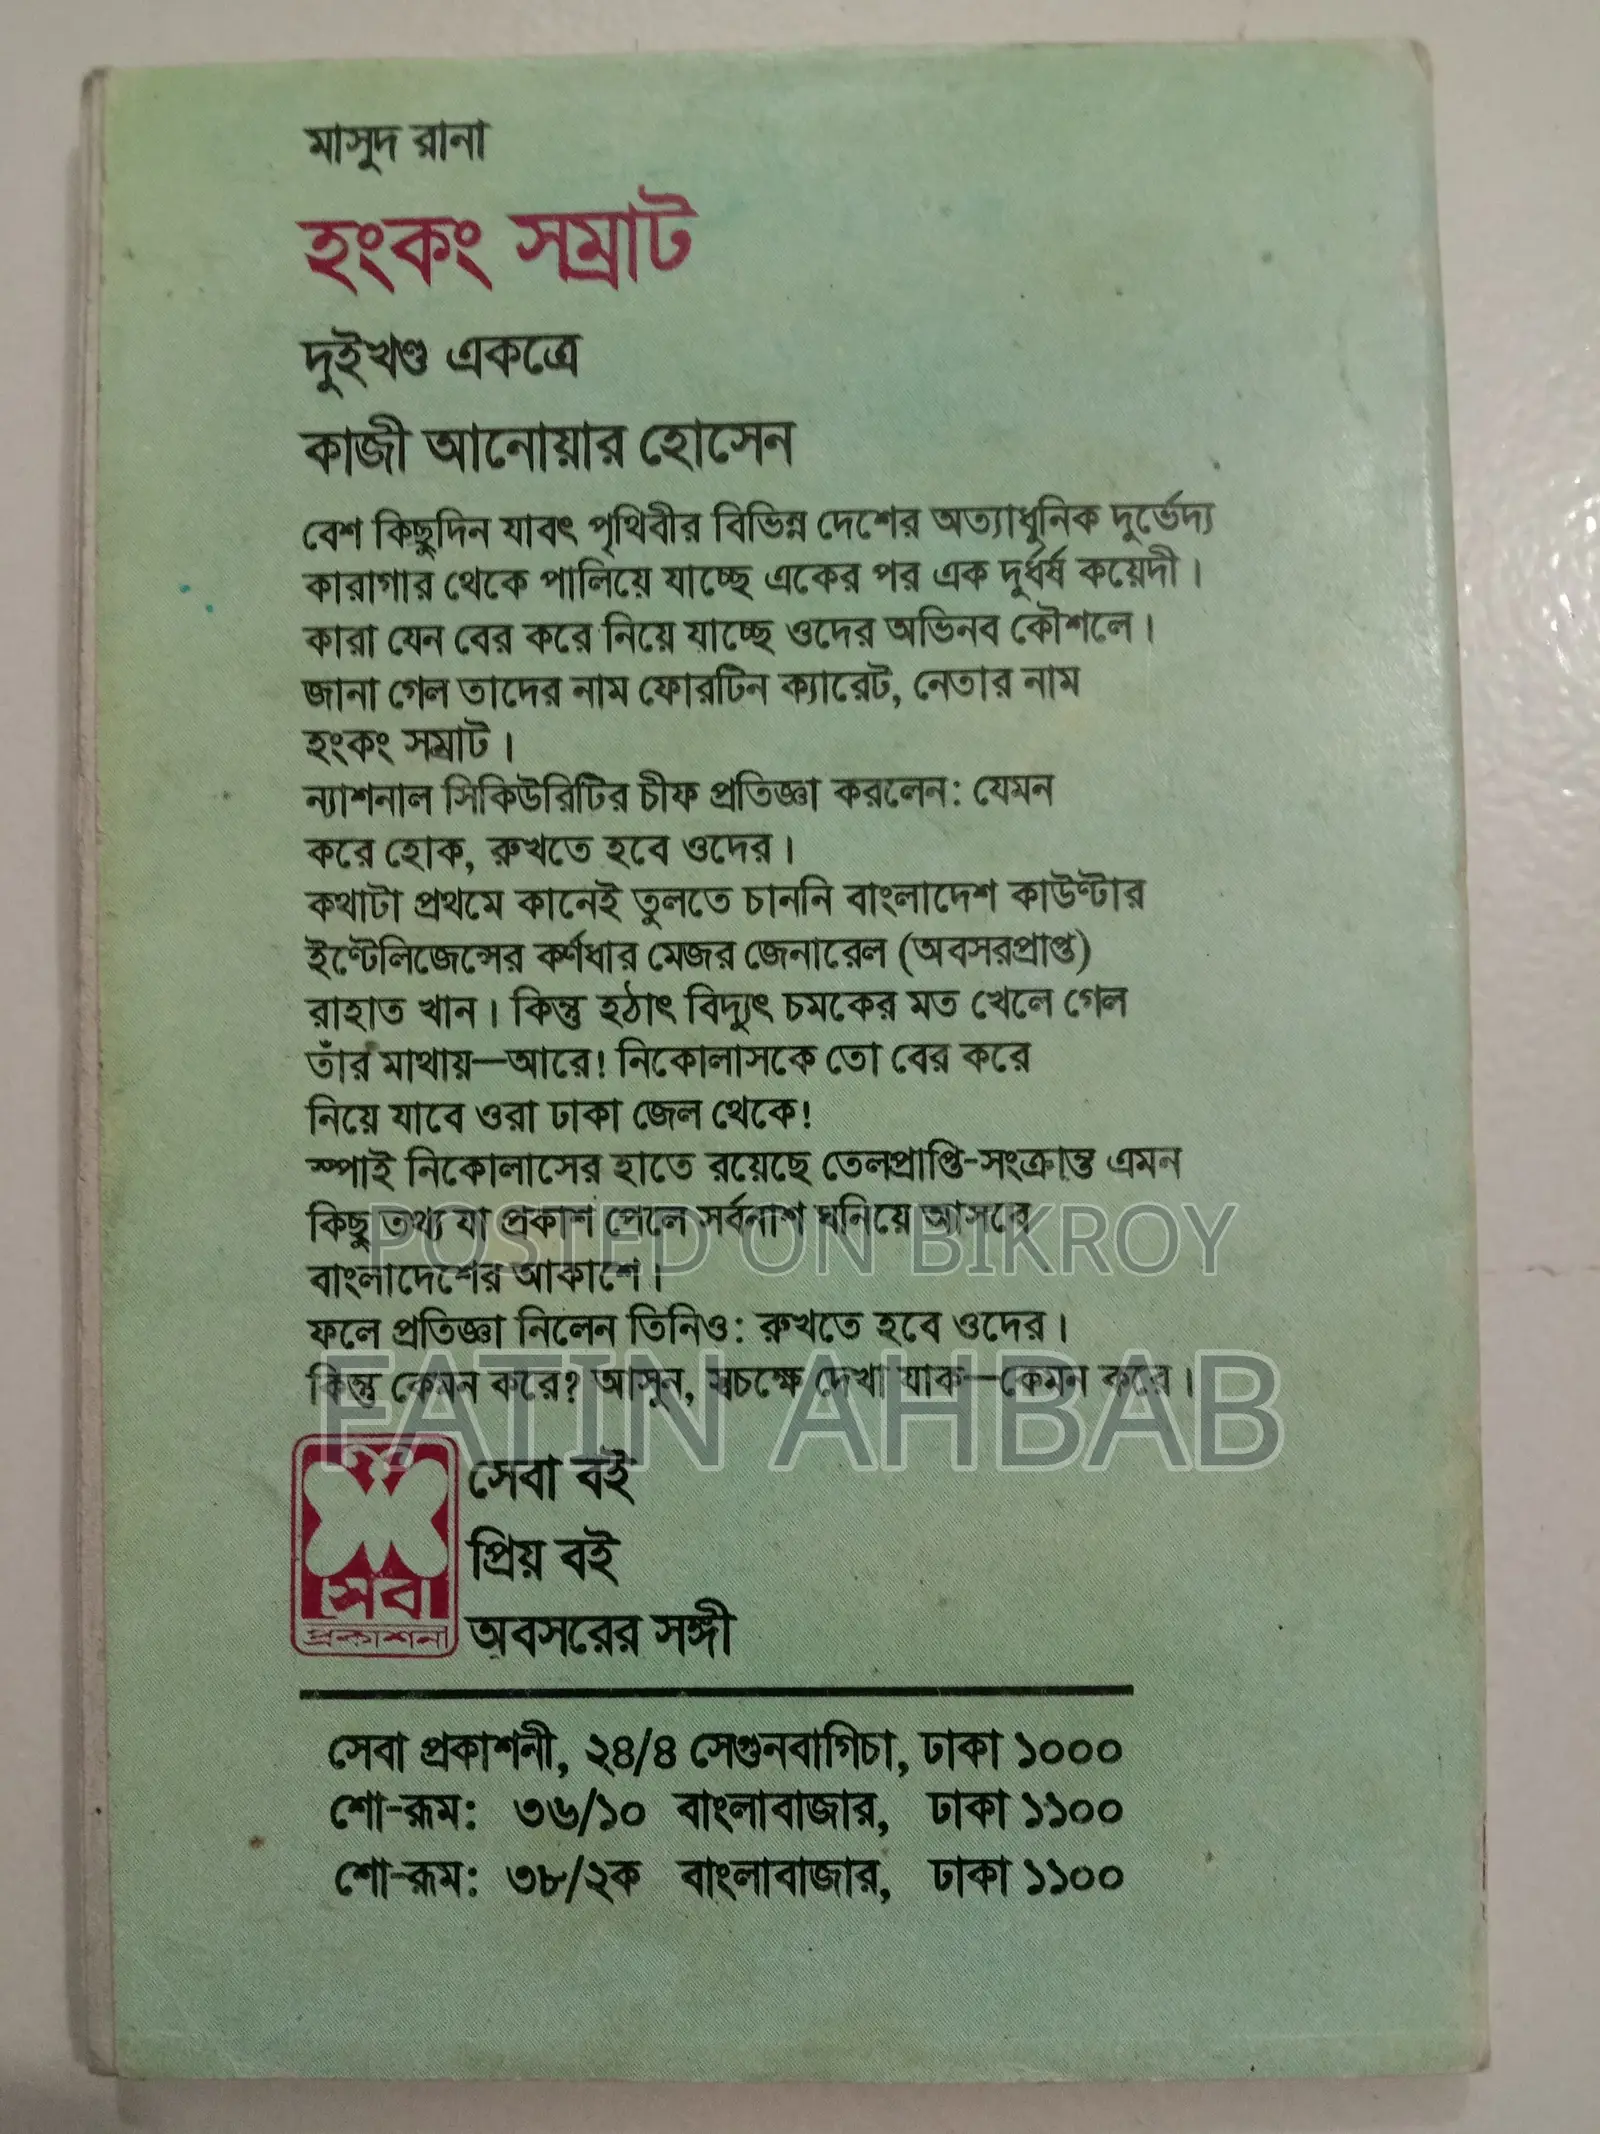 মাসুদ রানা
হংকং সম্রাট
দুইখণ্ড একত্রে
কাজী আনোয়ার হোসেন
বেশ কিছুদিন যাবৎ পৃথিবীর বিভিন্ন দেশের অত্যাধুনিক দুর্ভেদ্য
কারাগার থেকে পালিয়ে যাচ্ছে একের পর এক দুর্ধর্ষ কয়েদী।
কারা যেন বের করে নিয়ে যাচ্ছে ওদের অভিনব কৌশলে।
জানা গেল তাদের নাম ফোরটিন ক্যারেট, নেতার নাম
হংকং সম্রাট।
ন্যাশনাল সিকিউরিটির চীফ প্রতিজ্ঞা করলেন: যেমন
করে হোক, রুখতে হবে ওদের।
কথাটা প্রথমে কানেই তুলতে চাননি বাংলাদেশ কাউন্টার
ইন্টেলিজেন্সের কর্ণধার মেজর জেনারেল (অবসরপ্রাপ্ত)
রাহাত খান। কিন্তু হঠাৎ বিদ্যুৎ চমকের মত খেলে গেল
তাঁর মাথায়—আরে! নিকোলাসকে তো বের করে
নিয়ে যাবে ওরা ঢাকা জেল থেকে!
স্পাই নিকোলাসের হাতে রয়েছে তেলপ্রাপ্তি-সংক্রান্ত এমন
কিছু তথ্য যা প্রকাশ পেলে সর্বনাশ ঘনিয়ে আসবে
বাংলাদেশের আকাশে।
POSTED ON BIKROY
ফলে প্রতিজ্ঞা নিলেন তিনিও: রুখতে হবে ওদের।
কিন্তু কেমন করে? আসুন, স্বচক্ষে দেখা যাক—কেমন করে।
FATIN AHBAB
সেবা বই
প্রিয় বই
অবসরের সঙ্গী
সেবা
প্রকাশনী
সেবা প্রকাশনী, ২৪/৪ সেগুনবাগিচা, ঢাকা ১০০০
শো-রূম: ৩৬/১০ বাংলাবাজার, ঢাকা ১১০০
শো-রূম: ৩৮/২ক বাংলাবাজার, ঢাকা ১১০০